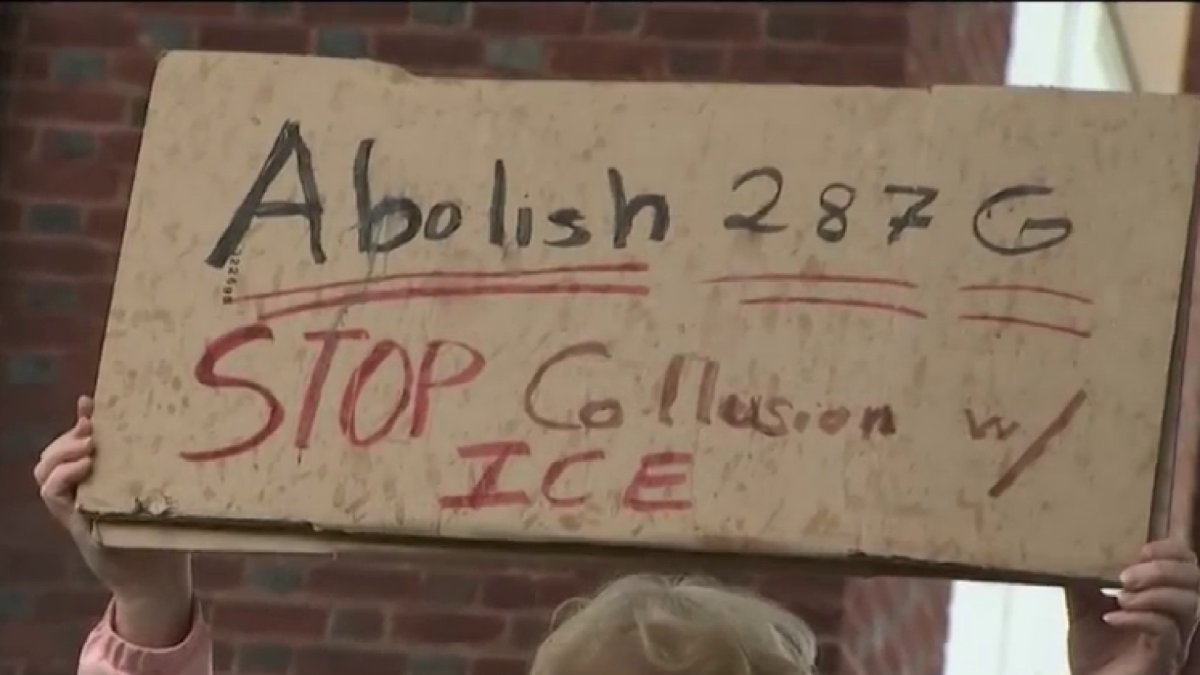 Abolish 287 G
STOP Collusion w/
ICE